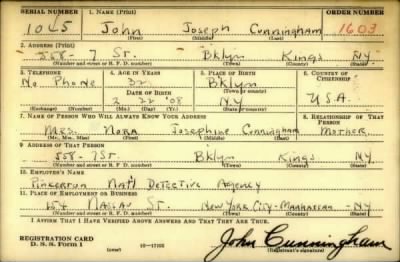 SERIAL NUMBER 1. NAME (Print) ORDER NUMBER
1045 John Joseph Cunningham 1603
(First) (Middle) (Last)
2. ADDRESS (Print)
558- 7 St. Bklyn Kings NY
(Number and street or R. F. D. number) (Town) (County) (State)
3. TELEPHONE 4. AGE IN YEARS 5. PLACE OF BIRTH 6. COUNTRY OF CITIZENSHIP
No Phone 32 Bklyn
DATE OF BIRTH (Town or county)
2 22 '08 NY U.S.A.
(Exchange) (Number) (Mo.) (Day) (Yr.) (State or country)
7. NAME OF PERSON WHO WILL ALWAYS KNOW YOUR ADDRESS 8. RELATIONSHIP OF THAT PERSON
Mrs. Nora Josephine Cunningham Mother
(Mr., Mrs., Miss) (First) (Middle) (Last)
9. ADDRESS OF THAT PERSON
558- 7St. Bklyn Kings NY
(Number and street or R. F. D. number) (Town) (County) (State)
10. EMPLOYER'S NAME
Pinkerton Nat'l Detective Agency
11. PLACE OF EMPLOYMENT OR BUSINESS
154 Nassau St. New York City- Manhattan- NY
(Number and street or R. F. D. number) (Town) (County) (State)
I AFFIRM THAT I HAVE VERIFIED ABOVE ANSWERS AND THAT THEY ARE TRUE.
REGISTRATION CARD
D. S. S. Form 1 (over) 16—17105 John Cunningham
(Registrant's signature)